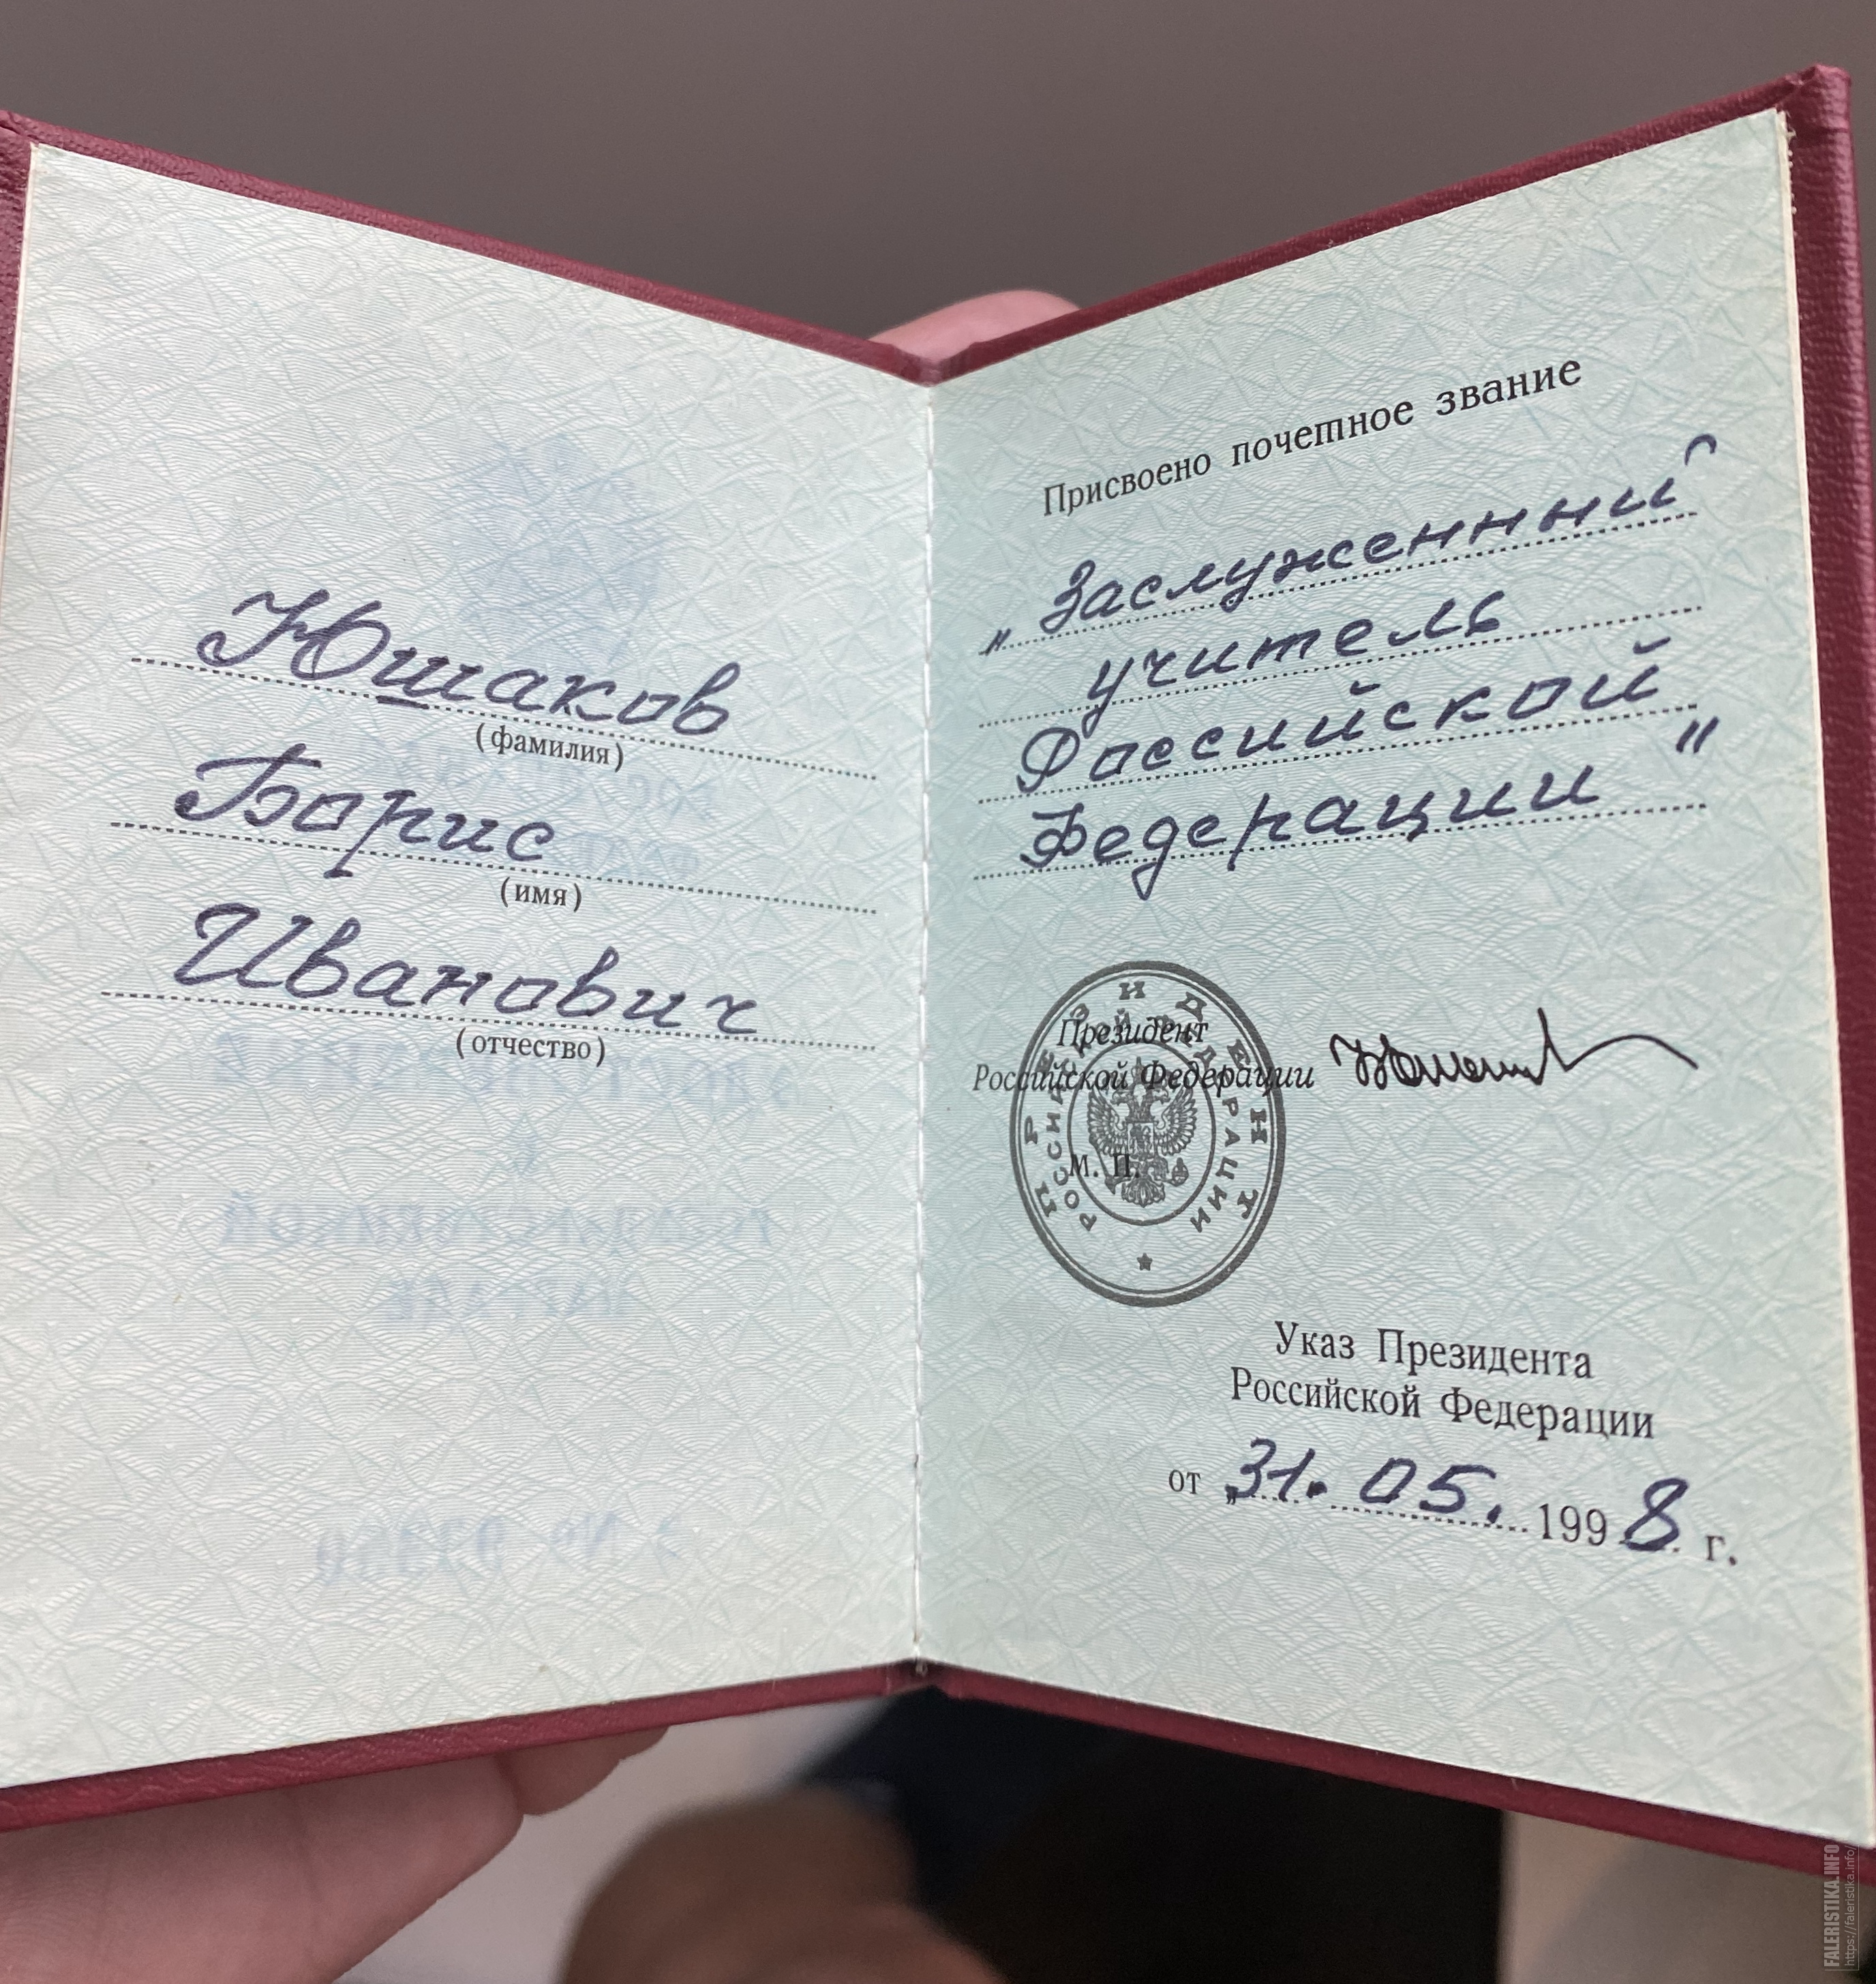 Юшаков
(фамилия)
Борис
(имя)
Иванович
(отчество)
Присвоено почетное звание
„Заслуженный
учитель
Российской
Федерации"
Президент
Российской Федерации
М. П.
ПРЕЗИДЕНТ
РОССИЙСКОЙ ФЕДЕРАЦИИ
Указ Президента
Российской Федерации
от „31. 05. 1998 г.
FALERISTIKA.INFO
https://faleristika.info/